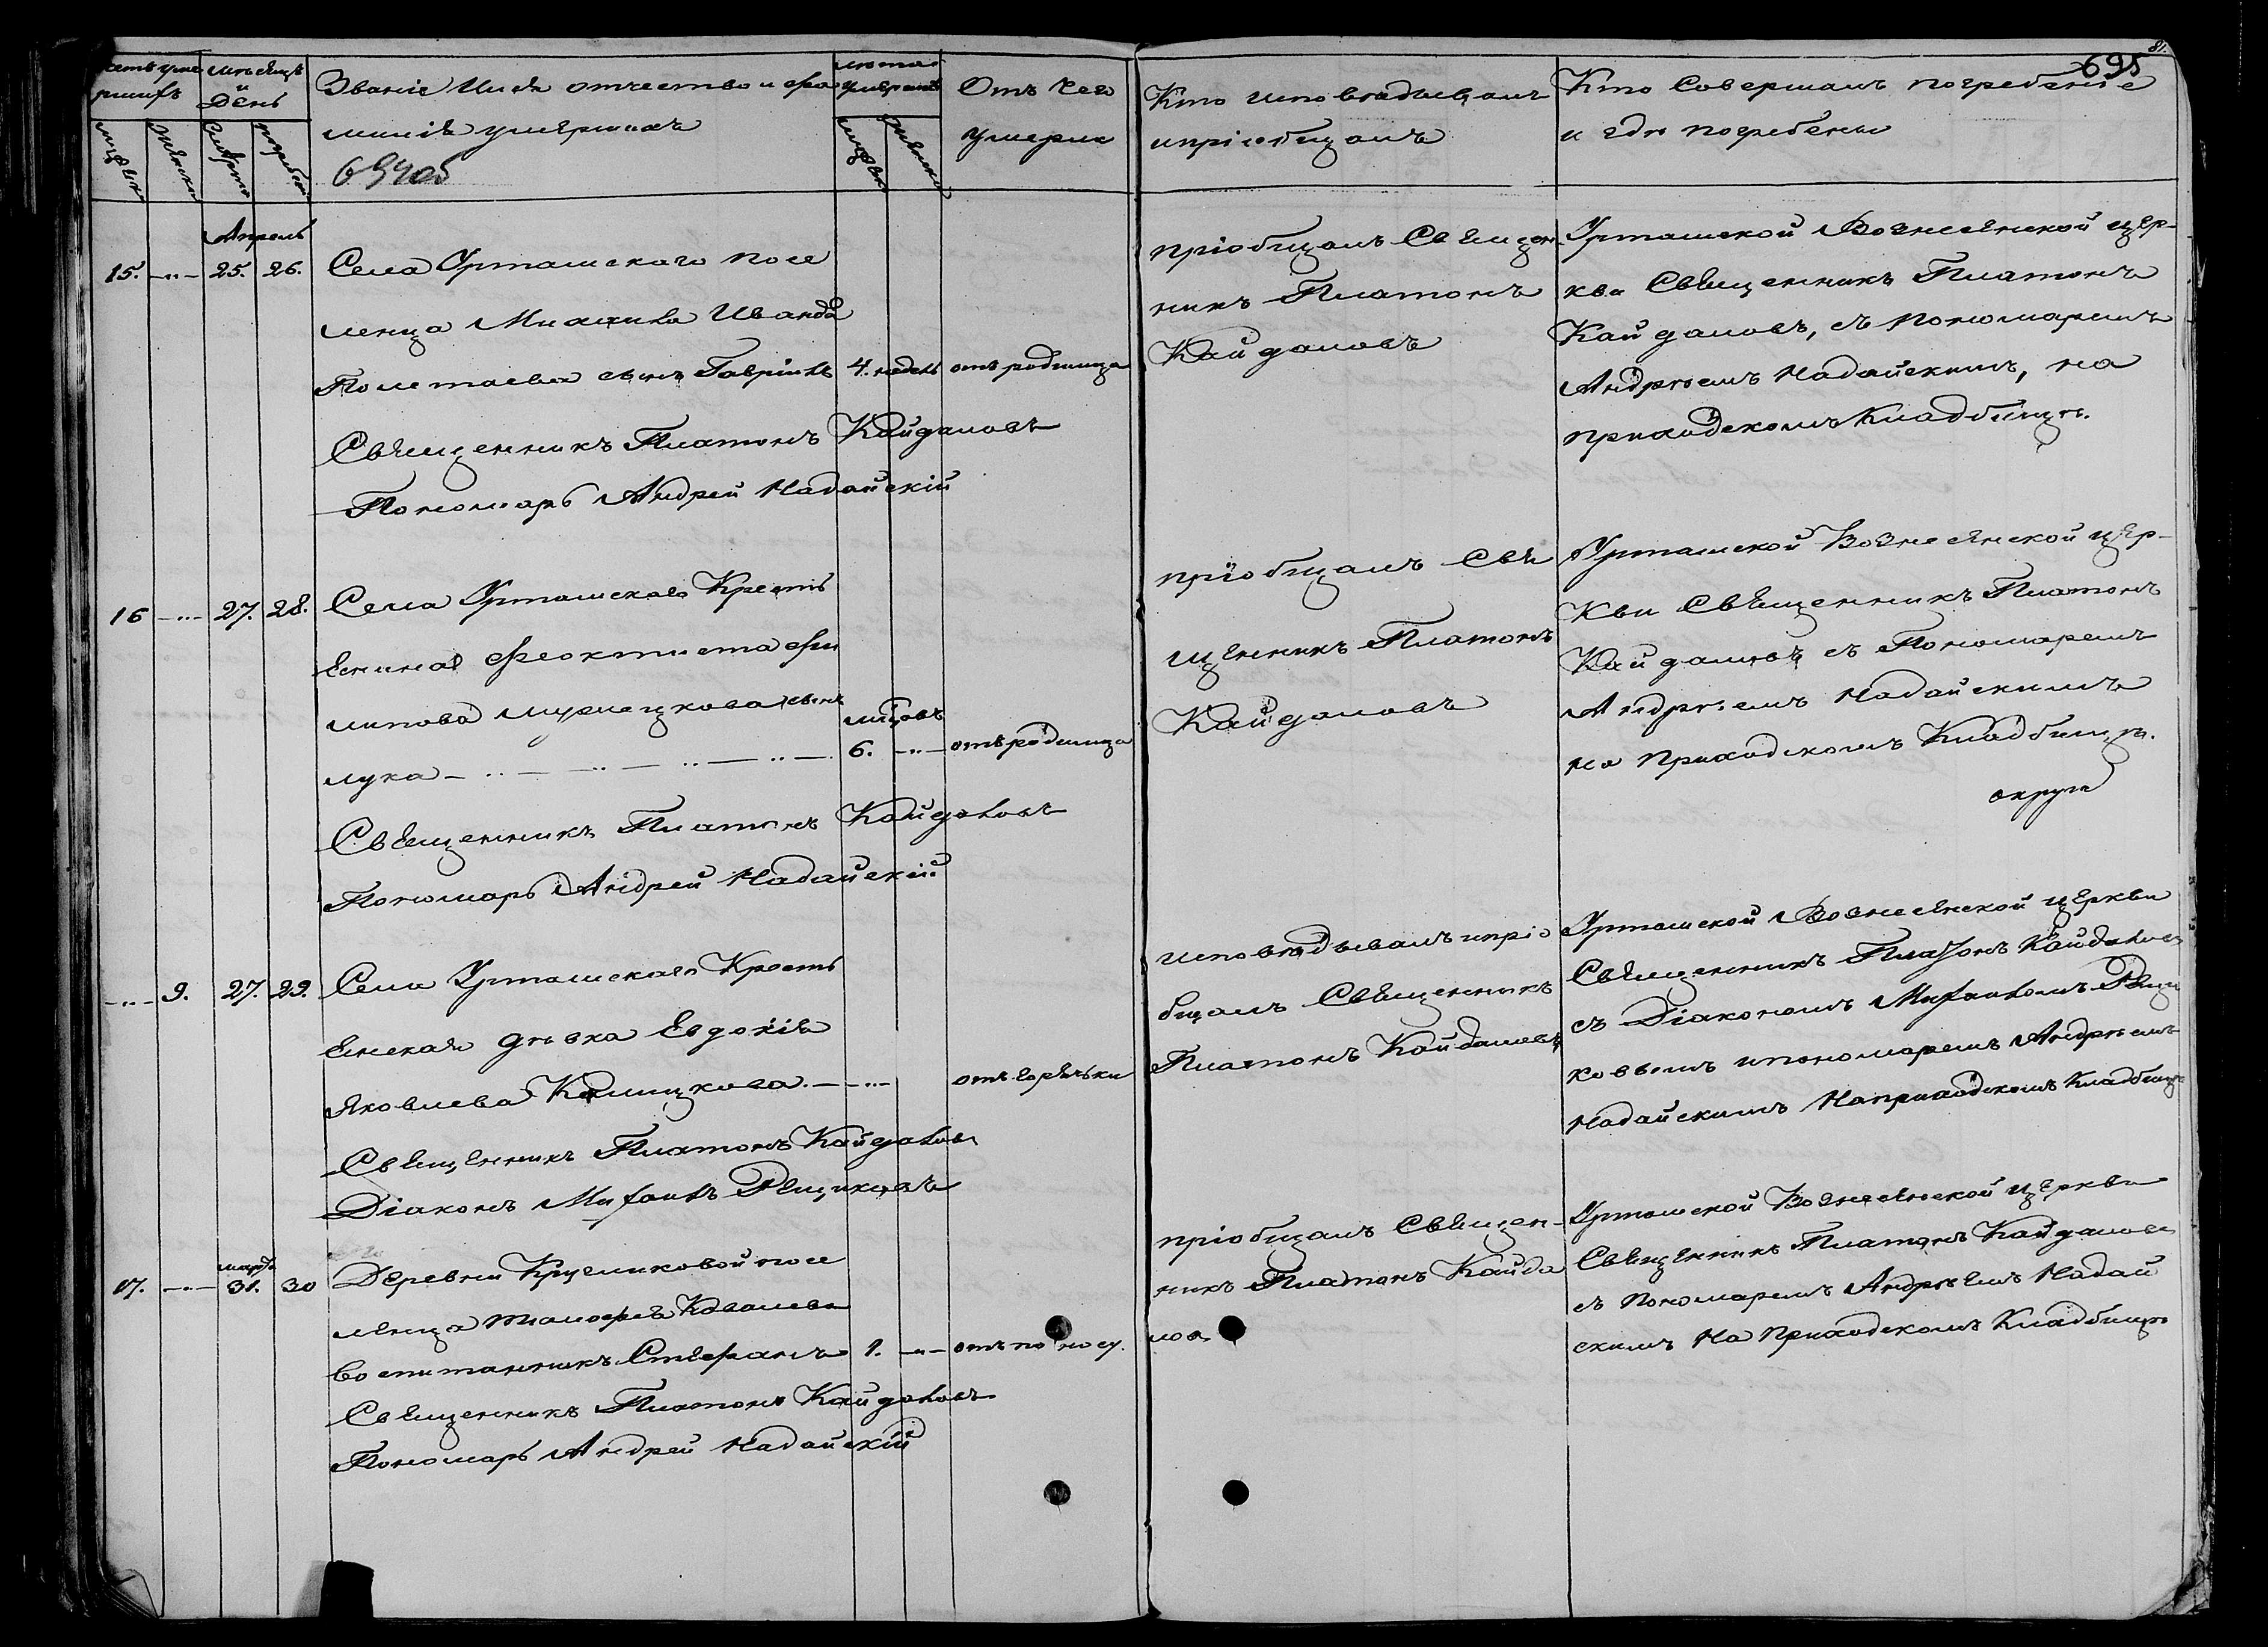 81.
695
Счетъ умершихъ
Мѣсяцъ и день
Званіе Имя отчество и фа
милія умершихъ
69405
Лѣта умершихъ
Отъ чего
умерли
Кто исповѣдывалъ
и пріобщалъ
Кто Совершалъ погребеніе
и гдѣ погребены
мужеск
женска
Смерти
погребен
мужеск
женска
Апрель
15. 25. 26.
Села Урташскаго посе
ленца Михаила Иванова
Полетаева сынъ Гавріилъ 4. недель отъ родимца
Священникъ Платонъ Кайдаловъ
Пономарь Андрей Надайскій
пріобщалъ Священ-
никъ Платонъ
Кайдаловъ
Урташской Вознесенской цер-
кви Священникъ Платонъ
Кайдаловъ, съ пономаремъ
Андрѣемъ Надайскимъ, на
приходскомъ Кладбищѣ.
16 27. 28.
Села Урташскаго Кресть
енина Феоктиста Фи
липова сынъ
лука
6. отъ родимца
Священникъ Платонъ Кайдаловъ
Пономарь Андрей Надайскій
пріобщалъ Свя
щенникъ Платонъ
Кайдаловъ
Урташской Вознесенской цер-
кви Священникъ Платонъ
Кайдаловъ съ Пономаремъ
Андрѣемъ Надайскимъ
на приходскомъ Кладбищѣ.
округи
9. 27. 29.
Села Урташскаго Кресть
енская дѣвка Евдокія
Яковлева отъ горячки
Священникъ Платонъ Кайдаловъ
Діаконъ Михаилъ Рещиковъ
исповѣдывалъ и прiо
бщалъ Священникъ
Платонъ Кайдаловъ
Урташской Вознесенской церкви
Священникъ Платонъ Кайдаловъ
съ Діакономъ Михаиломъ Рещи
ковымъ и пономаремъ Андрѣемъ
Надайскимъ На приходскомъ Кладбищѣ
17. марта 31. 30
Деревни Кругликовой посе
ленца Тимофея Ковалева
воспитанникъ Стефанъ 1. отъ поносу.
Священникъ Платонъ Кайдаловъ
Пономарь Андрей Надайскій
пріобщалъ Священ-
никъ Платонъ Кайда
ловъ
Урташской Вознесенской церкви
Священникъ Платонъ Кайдаловъ
съ пономаремъ Андрѣемъ Надай
скимъ На приходскомъ Кладбищѣ